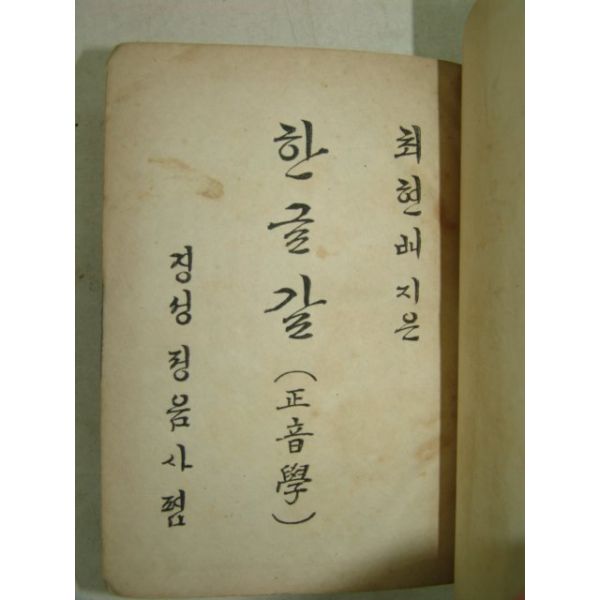 최현배 지은
한글갈
(正音學)
경성 정음사 펌